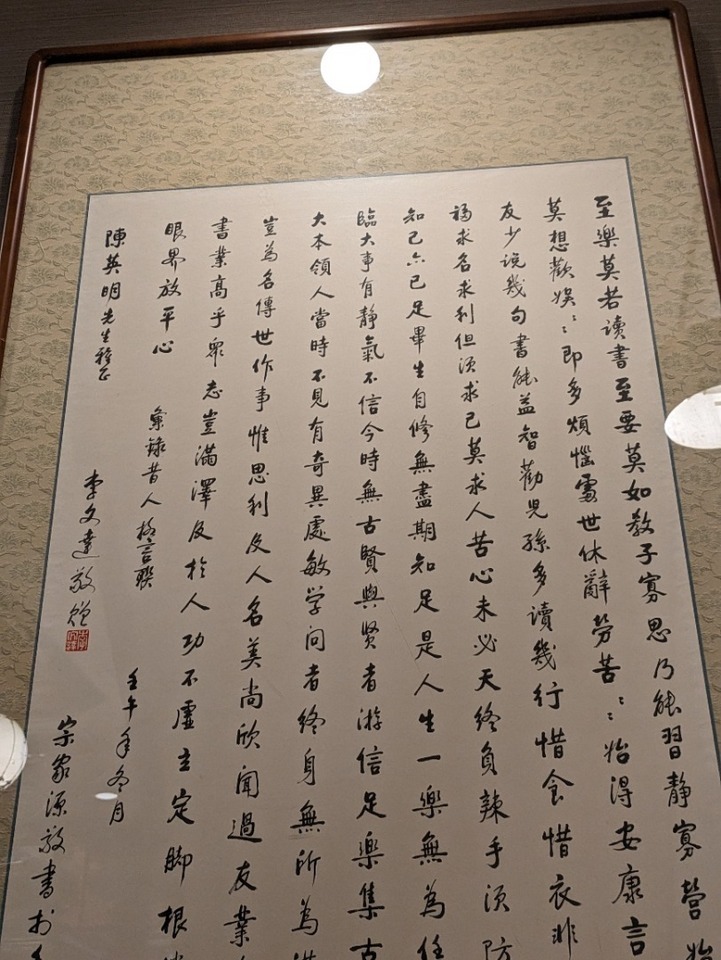 至樂莫若讀書至要莫如教子寡思乃能習靜寡營始
莫想歡娛：：即多煩惱處世休辭勞苦：：始得安康言
友少說幾句書能益智勸兒孫多讀幾行惜食惜衣非
福求名求利但須求己莫求人苦心未必天終負辣手須防
知己亦已足畢生自修無盡期知足是人生一樂無為任
臨大事有靜氣不信今時無古賢與賢者游信足樂集古
大本領人當時不見有奇異處敏学问者終身無所為滿
豈為名傳世作事惟思利及人名美尚欣聞過友業
書業高乎眾志豈滿澤及於人功不虛立定脚根
眼界放平心
彙錄昔人格言聯
壬午年冬月
陳英明先生雅正
李文達敬贈
宗家源敬書於